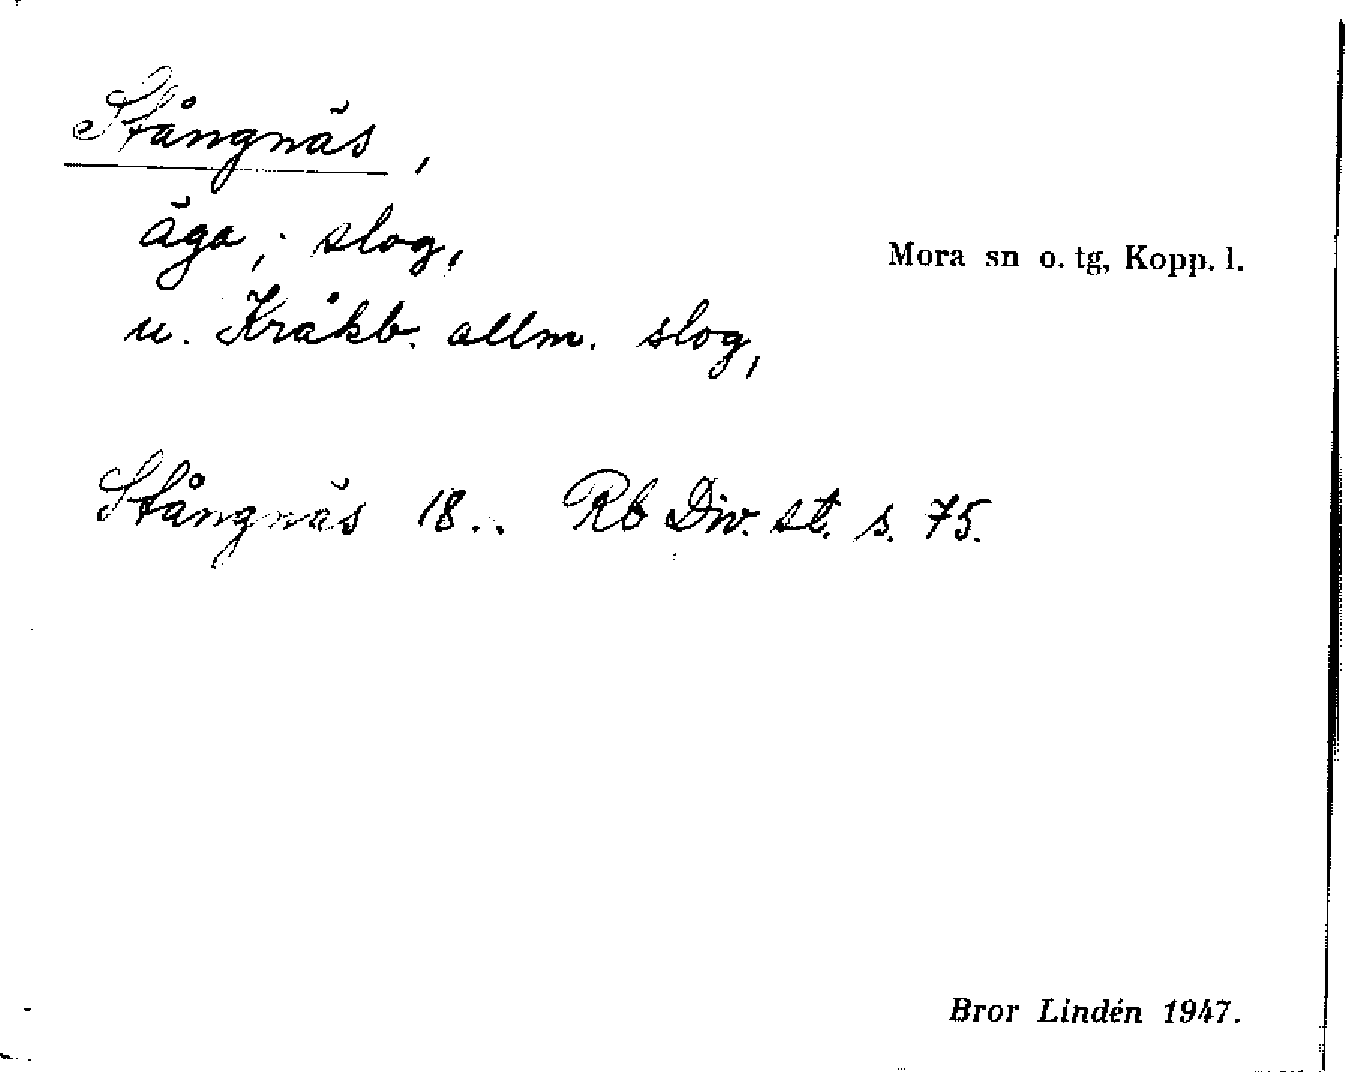 Stångnäs,
äga; slog,
Mora sn o. tg, Kopp. l.
u. Kråkb. allm. slog,
Stångnäs 18.. Rb Div. st. s. 75.
Bror Lindén 1947.